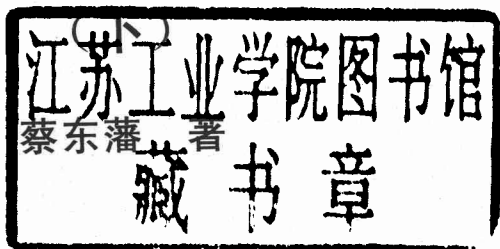 （下）
江苏工业学院图书馆
蔡东藩 著
藏书章